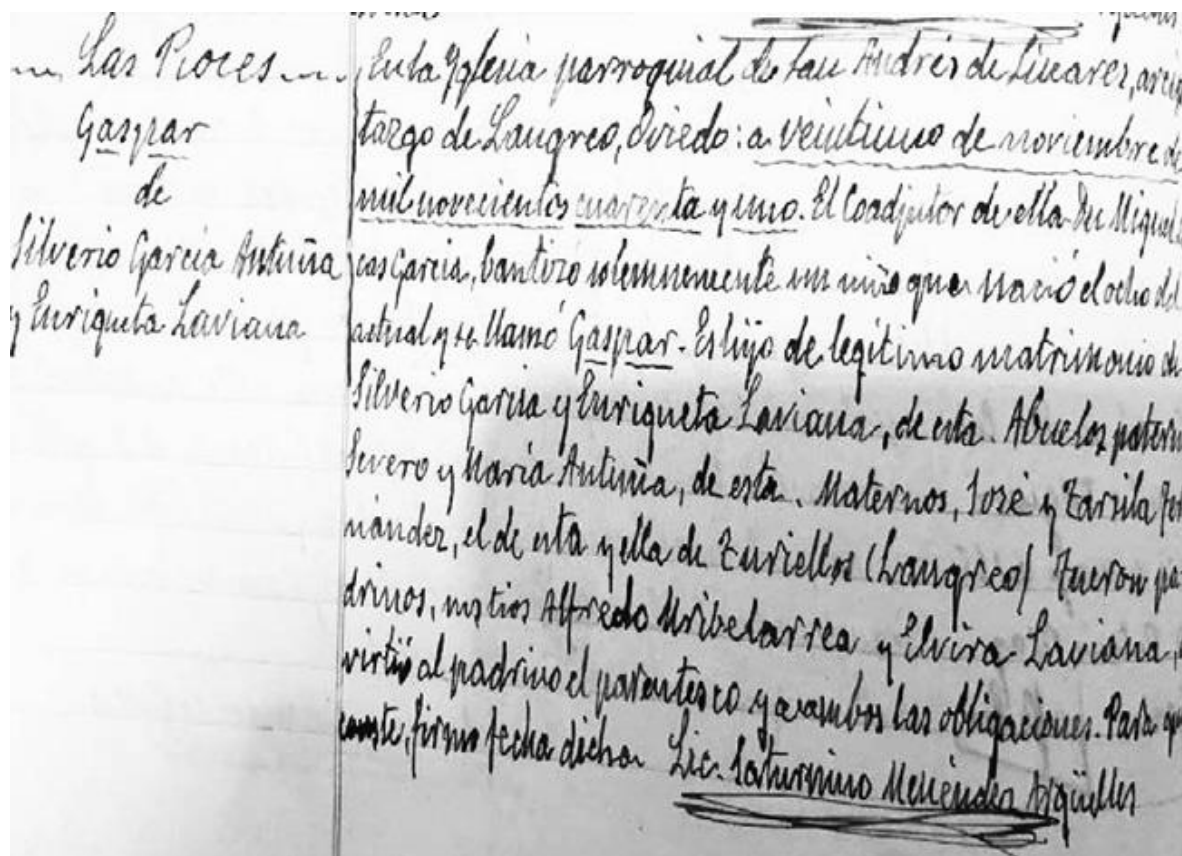 Las Pioces
Gaspar
de
Silverio García Antuña
y Enriqueta Laviana
En la Yglesia parroquial de San Andrés de Linares, arcip
tazgo de Langreo, Oviedo: a veintiuno de noviembre de
mil novecientos cuarenta y uno. El Coadjutor de ella Dn Miguel
cas García, bautizó solemnemente un niño que nació el ocho del
actual y se llamó Gaspar. Es hijo de legítimo matrimonio de
Silverio García y Enriqueta Laviana, de esta. Abuelos patern
Severo y María Antuña, de esta. Maternos, José y Tarsila Fer
nández, el de esta y ella de Turiellos (Langreo) Fueron pa
drinos, sus tios Alfredo Uribelarrea y Elvira Laviana,
virtió al padrino el parentesco y a ambos las obligaciones. Para qu
conste, firmo fecha dicha. Lic. Saturnino Menéndez Argüelles